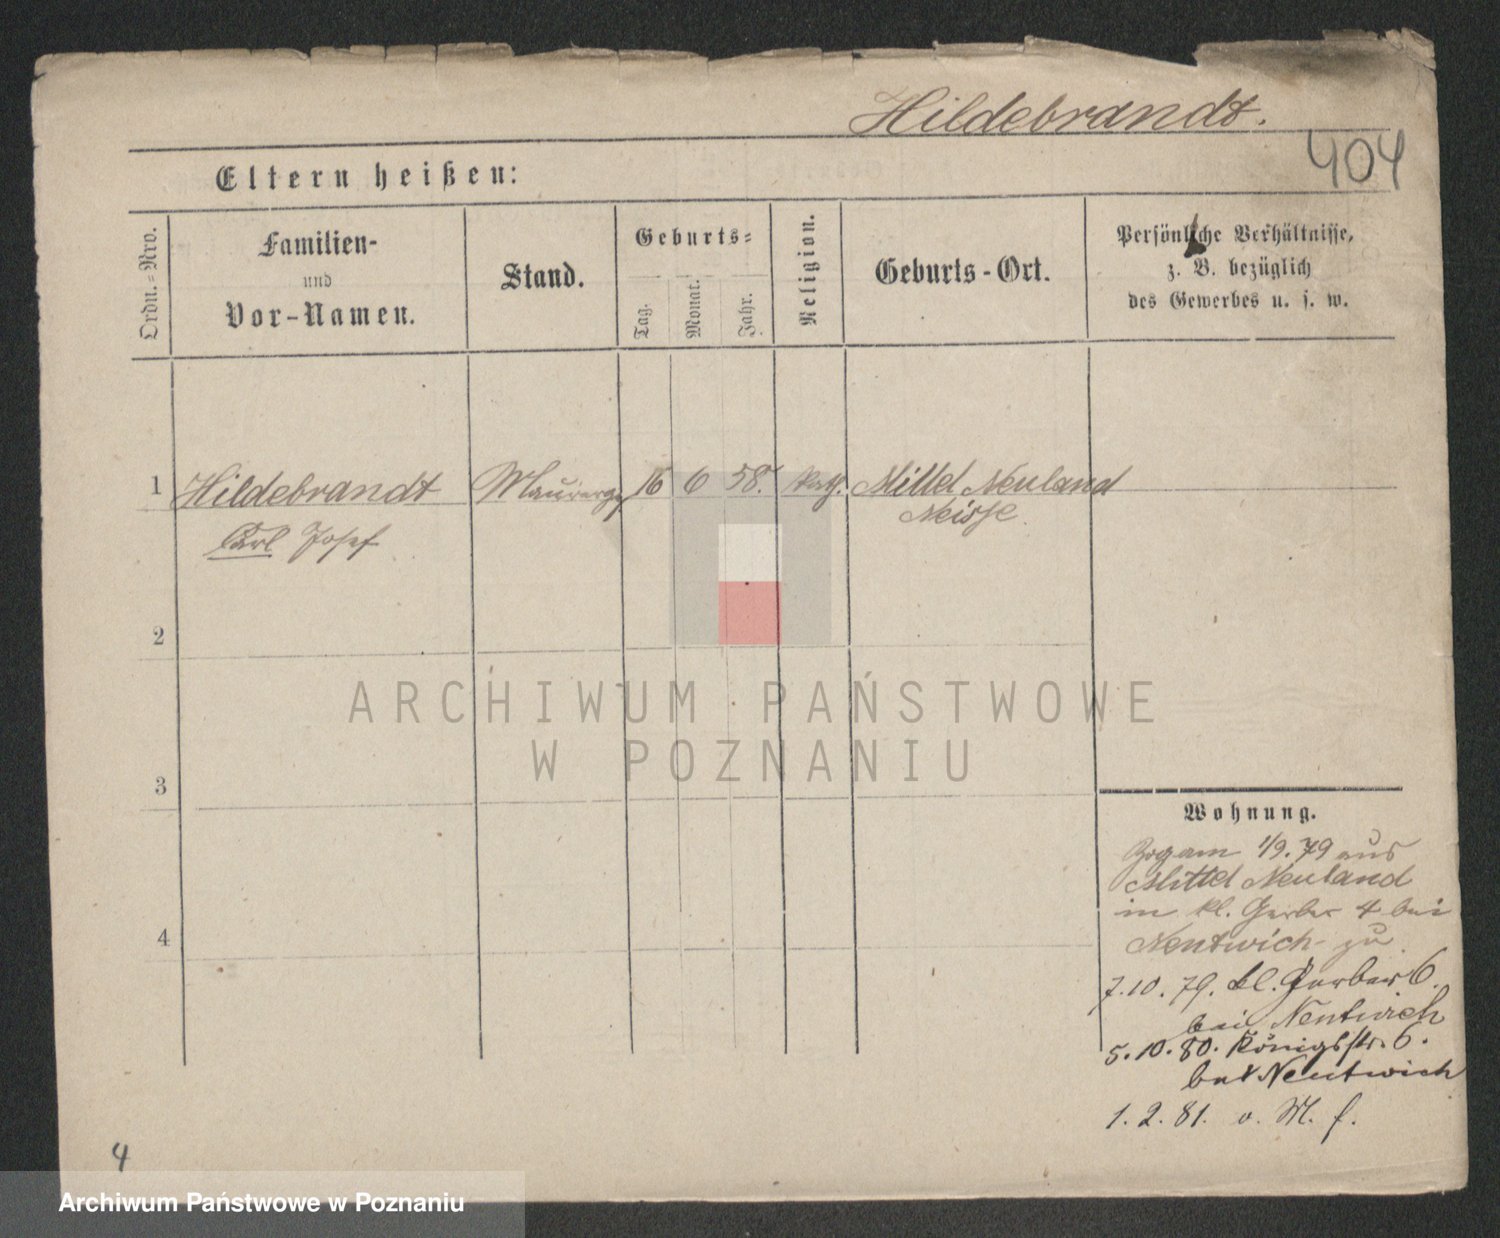 Hildebrandt.
404
Eltern heißen:
Ordn.-Nro.
Familien-
und
Vor-Namen.
Stand.
Geburts-
Tag.
Monat.
Jahr.
Religion.
Geburts-Ort.
Persönliche Verhältnisse,
z. B. bezüglich
des Gewerbes u. s. w.
1 Hildebrandt Maurerges 16 6 58. kath. Mittel Neuland
Neisse
Carl Josef
2
3
4
ARCHIWUM PAŃSTWOWE
W POZNANIU
Wohnung.
Zog am 1/9. 79 aus
Mittel Neuland
in kl. Gerber 4 bei
Nentwich zu
7.10.79. kl. Gerber 6.
bei Nentwich
5.10.80. Königsstr. 6.
bei Nentwich
1.2.81. o. M. f.
4
Archiwum Państwowe w Poznaniu